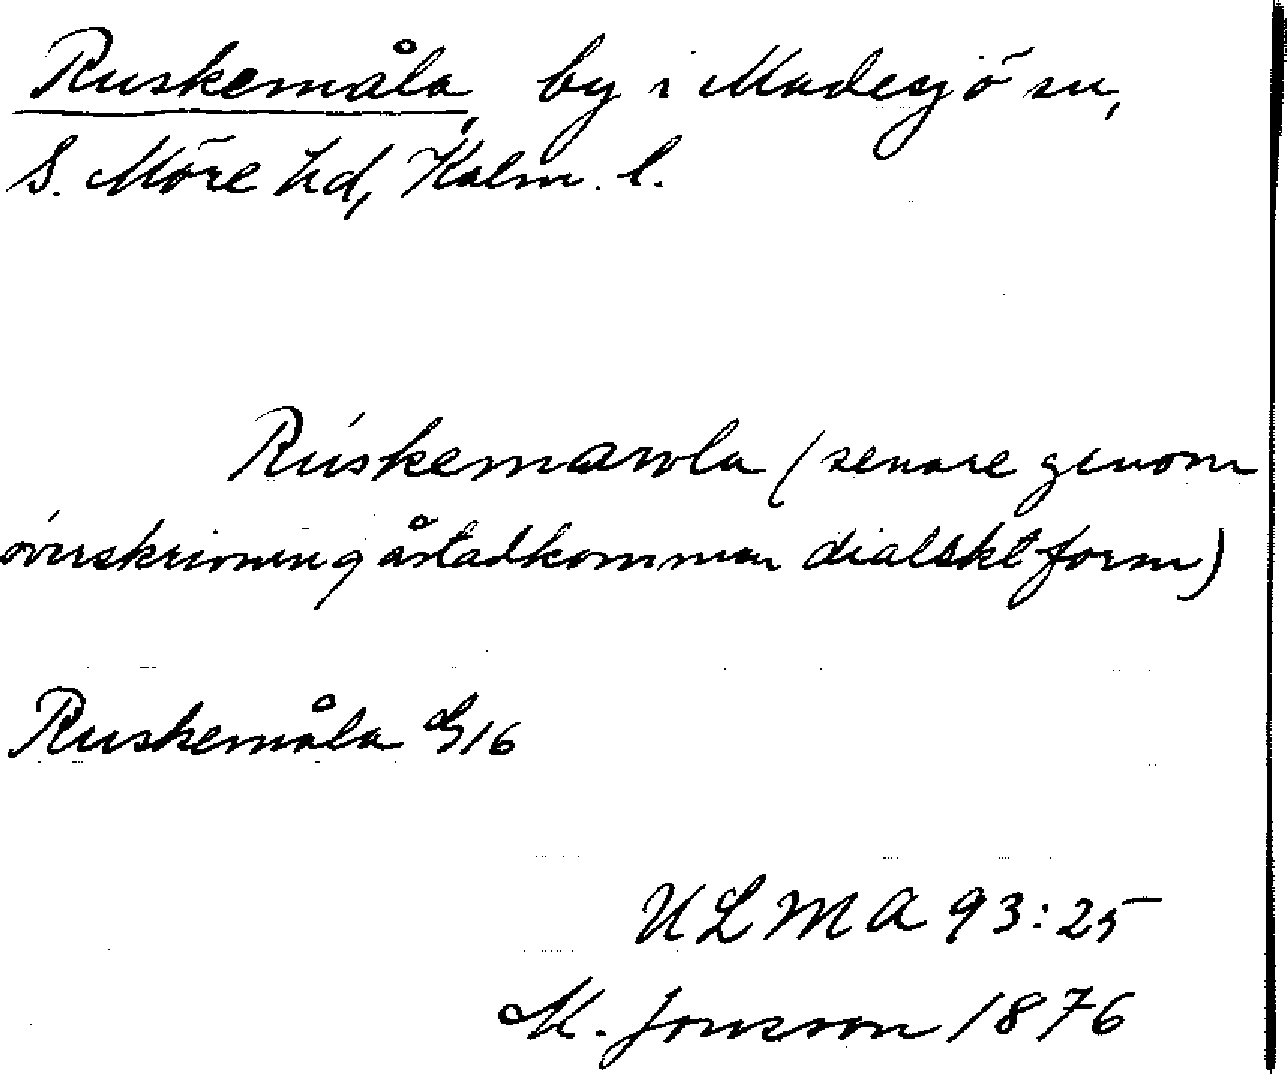 Ruskemåla, by i Madesjö sn,
S. Möre hd, Kalm. l.
Rúskemawla (senare genom
överskrivning åstadkommen dialekt form)
Ruskemåla G16
ULMA 93:25
M. Jonsson 1876